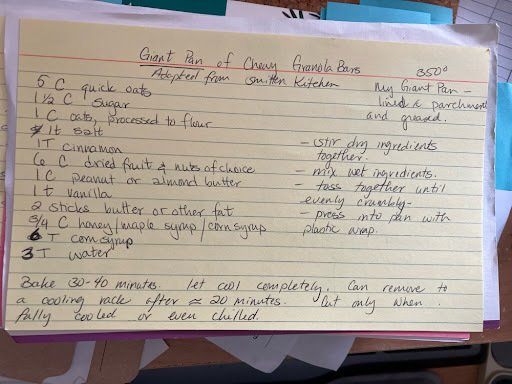 Giant Pan of Chewy Granola Bars
Adapted from Smitten Kitchen
350°
5 C quick oats
1 1/2 C sugar
1 C oats, processed to flour
1t salt
1T cinnamon
6 C dried fruit & nuts of choice
1 C peanut or almond butter
1 t vanilla
2 sticks butter or other fat
3/4 C honey/maple syrup/corn syrup
6 T corn syrup
3 T water
My Giant Pan –
lined c parchment
and greased.
– stir dry ingredients
together.
– mix wet ingredients.
– toss together until
evenly crumbly –
– press into pan with
plastic wrap.
Bake 30-40 minutes. Let cool completely. Can remove to
a cooling rack after ≈ 20 minutes. Cut only when
fully cooled or even chilled.